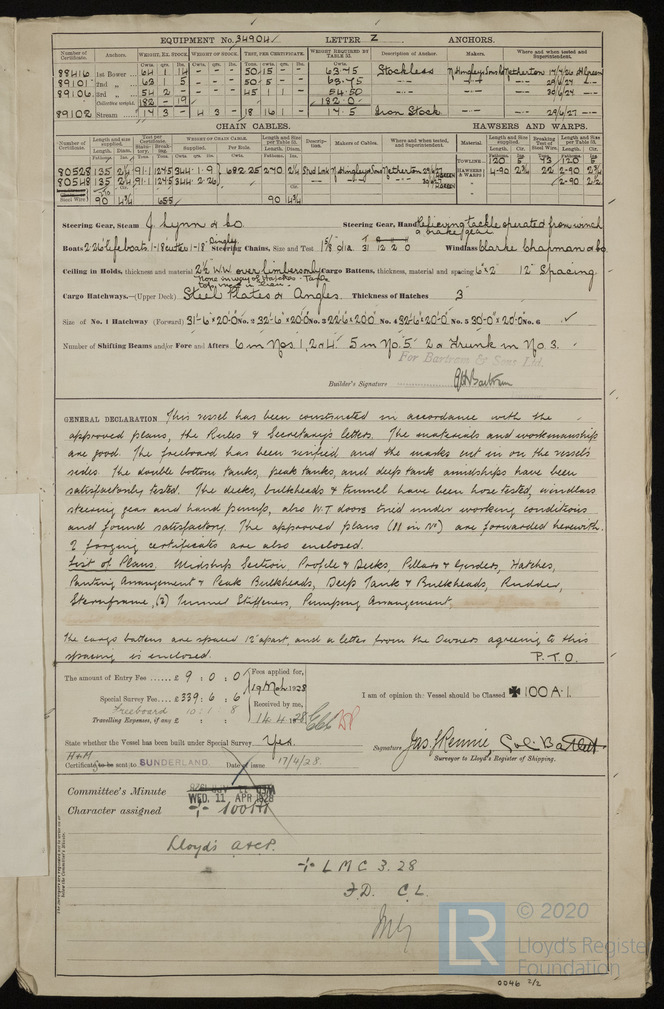 EQUIPMENT No. 34904 LETTER Z ANCHORS.
Number of Certificate. Anchors. WEIGHT, EX. STOCK. WEIGHT OF STOCK. TEST, PER CERTIFICATE. WEIGHT REQUIRED BY TABLE 22. Description of Anchor. Makers. Where and when tested and Superintendent.
88416 1st Bower 64 1 14 - - - 50 15 - - 63.75 Stockless N. Hingley & Sons Ld Netherton
89101 2nd " 63 1 5 - - - 50 5 - - 63.75
89106 3rd " 54 2 - - - - 45 1 1 54.50
Collective weight. 182 - 19 182.0
89102 Stream 14 3 - 4 3 - 18 16 1 14.5 Iron Stock 29/6/27
CHAIN CABLES. HAWSERS AND WARPS.
80528 135 2¼ 91.1 127.5 344.1.9 682.25 270 2¼ Stud Link N. Hingley & Sons Netherton
80548 135 2¼ 91.1 127.5 344.2.26
Steel Wire 90 4¾ 65.5 90 4¾
TOWLINE 120 120
HAWSERS & WARPS 4-90 2¾ 22 2-90 2¾
2-90 2½
Steering Gear, Steam J. Lynn & Co Steering Gear, Hand Relieving tackle operated from winch
& brake gear
Boats 2-26' Lifeboats 1-18' cutter 1-18' Dinghy Steering Chains, Size and Test 1⅝ dia 31 12 2 0 Windlass Clarke Chapman & Co.
Ceiling in Holds, thickness and material 2½ W.W. over limbers only Cargo Battens, thickness, material and spacing 6"x2" 12" Spacing
None in way of Hatches. Tank
top in lieu.
Cargo Hatchways.—(Upper Deck) Steel Plates & Angles. Thickness of Hatches 3
Size of No. 1 Hatchway (Forward) 31'-6"x20'-0" No. 2 32'-6"x20'-0" No. 3 22'-6"x20'0" No. 4 32'-6"x20'-0" No. 5 30'-0"x20'-0" No. 6
Number of Shifting Beams and/or Fore and Afters 6 in Nos 1, 2 & 4. 5 in No. 5. 2 & trunk in No 3.
For Bartram & Sons Ltd.
Builder's Signature
GENERAL DECLARATION This vessel has been constructed in accordance with the
approved plans, the Rules & Secretary's letters. The materials and workmanship
are good. The freeboard has been verified and the marks cut in on the vessel's
sides. The double bottom tanks, peak tanks, and deep tank amidships have been
satisfactorily tested. The decks, bulkheads & tunnel have been hose tested, windlass
steering gear and hand pumps, also W.T doors tried under working conditions
and found satisfactory. The approved plans (11 in No) are forwarded herewith.
2 forging certificates are also enclosed.
List of Plans. Midship Section, Profile & Decks, Pillars & Girders, Hatches,
Panting Arrangement & Peak Bulkheads, Deep Tank & Bulkheads, Rudder,
Sternframe, (2) Tunnel Stiffeners, Pumping Arrangement,
The cargo battens are spaced 12" apart, and a letter from the Owners agreeing to this
spacing is enclosed. P.T.O.
The amount of Entry Fee £ 9 : 0 : 0 Fees applied for,
19 Mch 1928
Special Survey Fee £ 339 : 6 : 6
Freeboard 10 : 1 : 8 Received by me,
Travelling Expenses, if any £ : : 14.4.1928
I am of opinion the Vessel should be Classed ✠ 100A.1.
State whether the Vessel has been built under Special Survey Yes.
Signature Jas. J. Rennie, Col. Bartlett
Surveyor to Lloyd's Register of Shipping.
H+M
Certificate to be sent to SUNDERLAND. Date of issue 17/4/28.
Committee's Minute WED. 11 APR 1928
Character assigned ✠ 100A1
Lloyd's A&CP.
✠ L M C 3. 28
F.D. C.L.
LR © 2020
Lloyd's Register
Foundation
0046 2/2